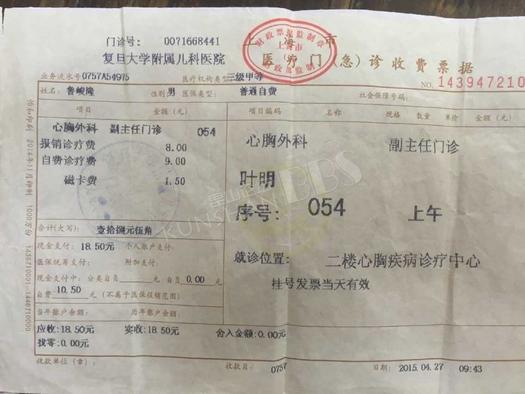 门诊号: 0071668441
上海市
复旦大学附属儿科医院
医疗门(急)诊收费票据
业务流水号 0757A54975 医疗机构类型: 三级甲等
No 143947210
姓名 鲁峻隆 性别 男 医保类型: 普通自费 社会保障号码:
项目 金额(元) 项目 规格 数量 单价 金额(元)
心胸外科 副主任门诊 054 心胸外科 副主任门诊
报销诊疗费 8.00
自费诊疗费 9.00
叶明
磁卡费 1.50
序号: 054 上午
合计(大写): 壹拾捌元伍角
现金支付: 18.50元 个人账户支付:
就诊位置: 二楼心胸疾病诊疗中心
医保统筹支付: 附加支付:
现金支付中: 分类自负 元 自负 0.00 元
挂号发票当天有效
自费 10.50 元 (不属于医保报销范围)
当年账户余额: 历年账户余额:
应收: 18.50元 实收: 18.50元 舍入金额: 0.00元
找零: 0.00元
收款单位(章): 收款员: 0757 2015.04.27 09:43